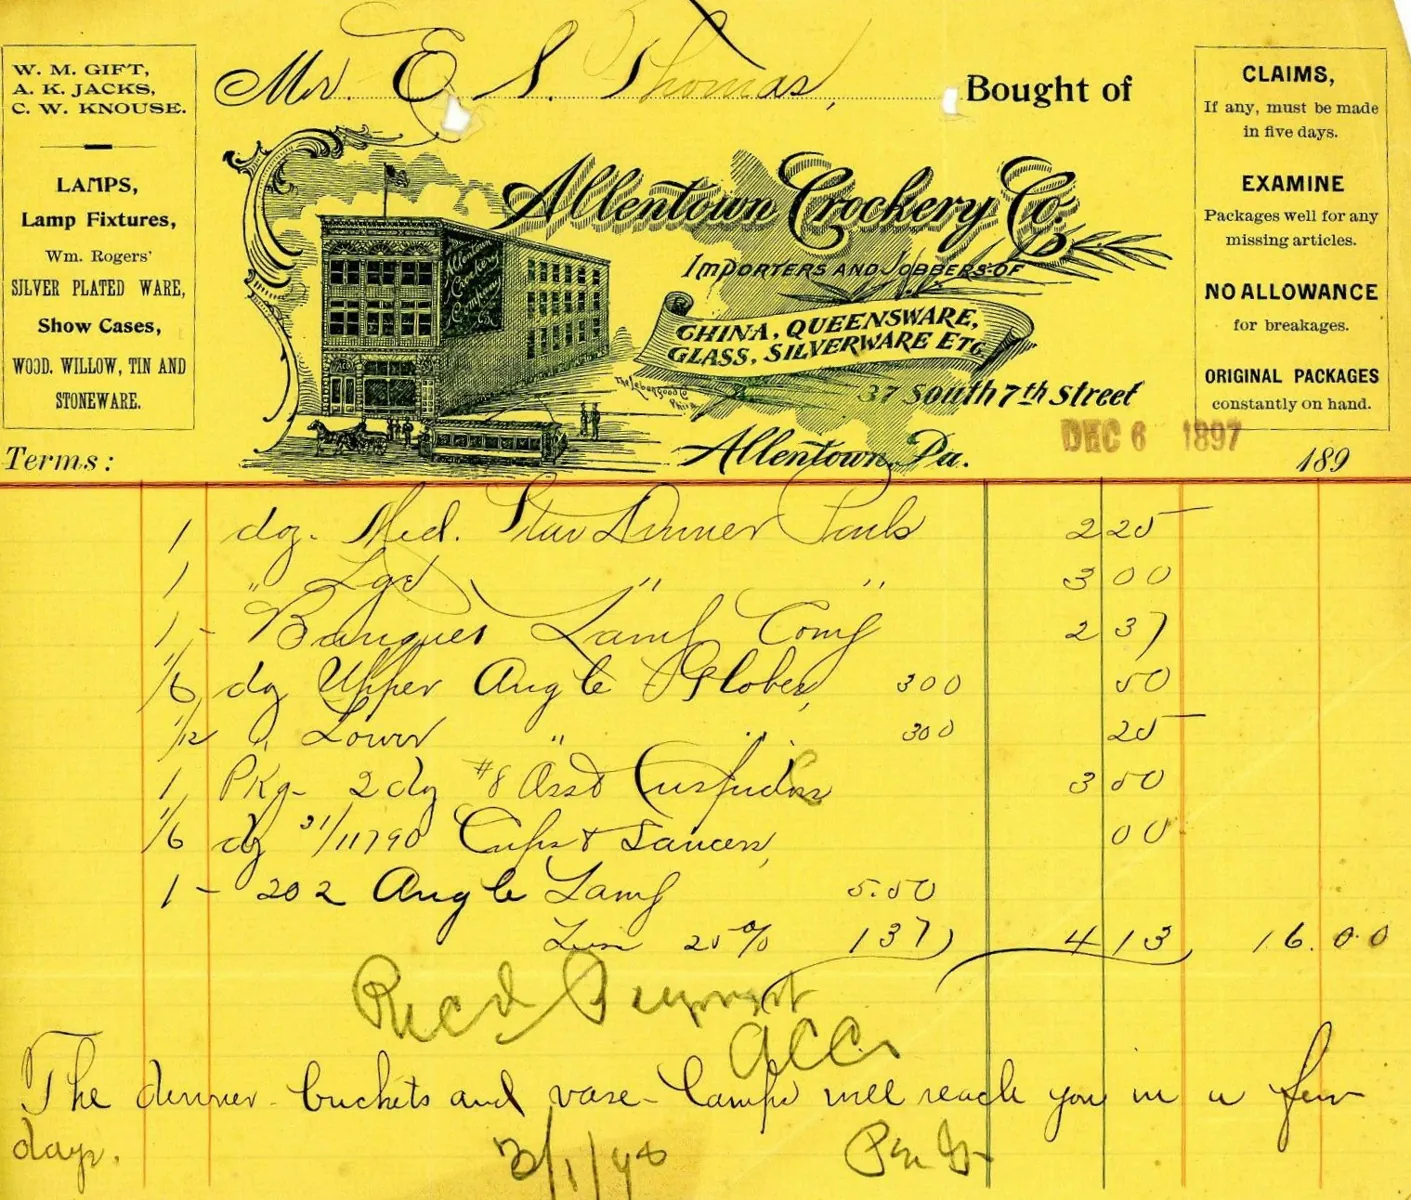 W. M. GIFT,
A. K. JACKS,
C. W. KNOUSE.
LAMPS,
Lamp Fixtures,
Wm. Rogers'
SILVER PLATED WARE,
Show Cases,
WOOD, WILLOW, TIN AND
STONEWARE.
Mr. E. S. Thomas, Bought of
Allentown Crockery Co.
IMPORTERS AND JOBBERS OF
CHINA, QUEENSWARE,
GLASS, SILVERWARE ETC.
37 South 7th Street
Allentown, Pa.
Allentown
Crockery
Company
CLAIMS,
If any, must be made
in five days.
EXAMINE
Packages well for any
missing articles.
NO ALLOWANCE
for breakages.
ORIGINAL PACKAGES
constantly on hand.
DEC 6 1897
Terms: 189
1 doz. Med. Star Dinner Pails 2 25
1 " Lge " " 3 00
1 - Banquet Lamp Comp 2 37
1/6 dz Upper Angle Globes, 300 50
1/12 " Lower " " 300 25
1 Pkg - 2 dz #8 Asst Cuspidors 3 50
1/6 dz 31/11790 Cups & Saucers, 00
1 - 202 Angle Lamp 5.50
Less 25% 137 4 13 16.00
Recd Payment
ACCo
The dinner buckets and vase-lamps will reach you in a few
days.